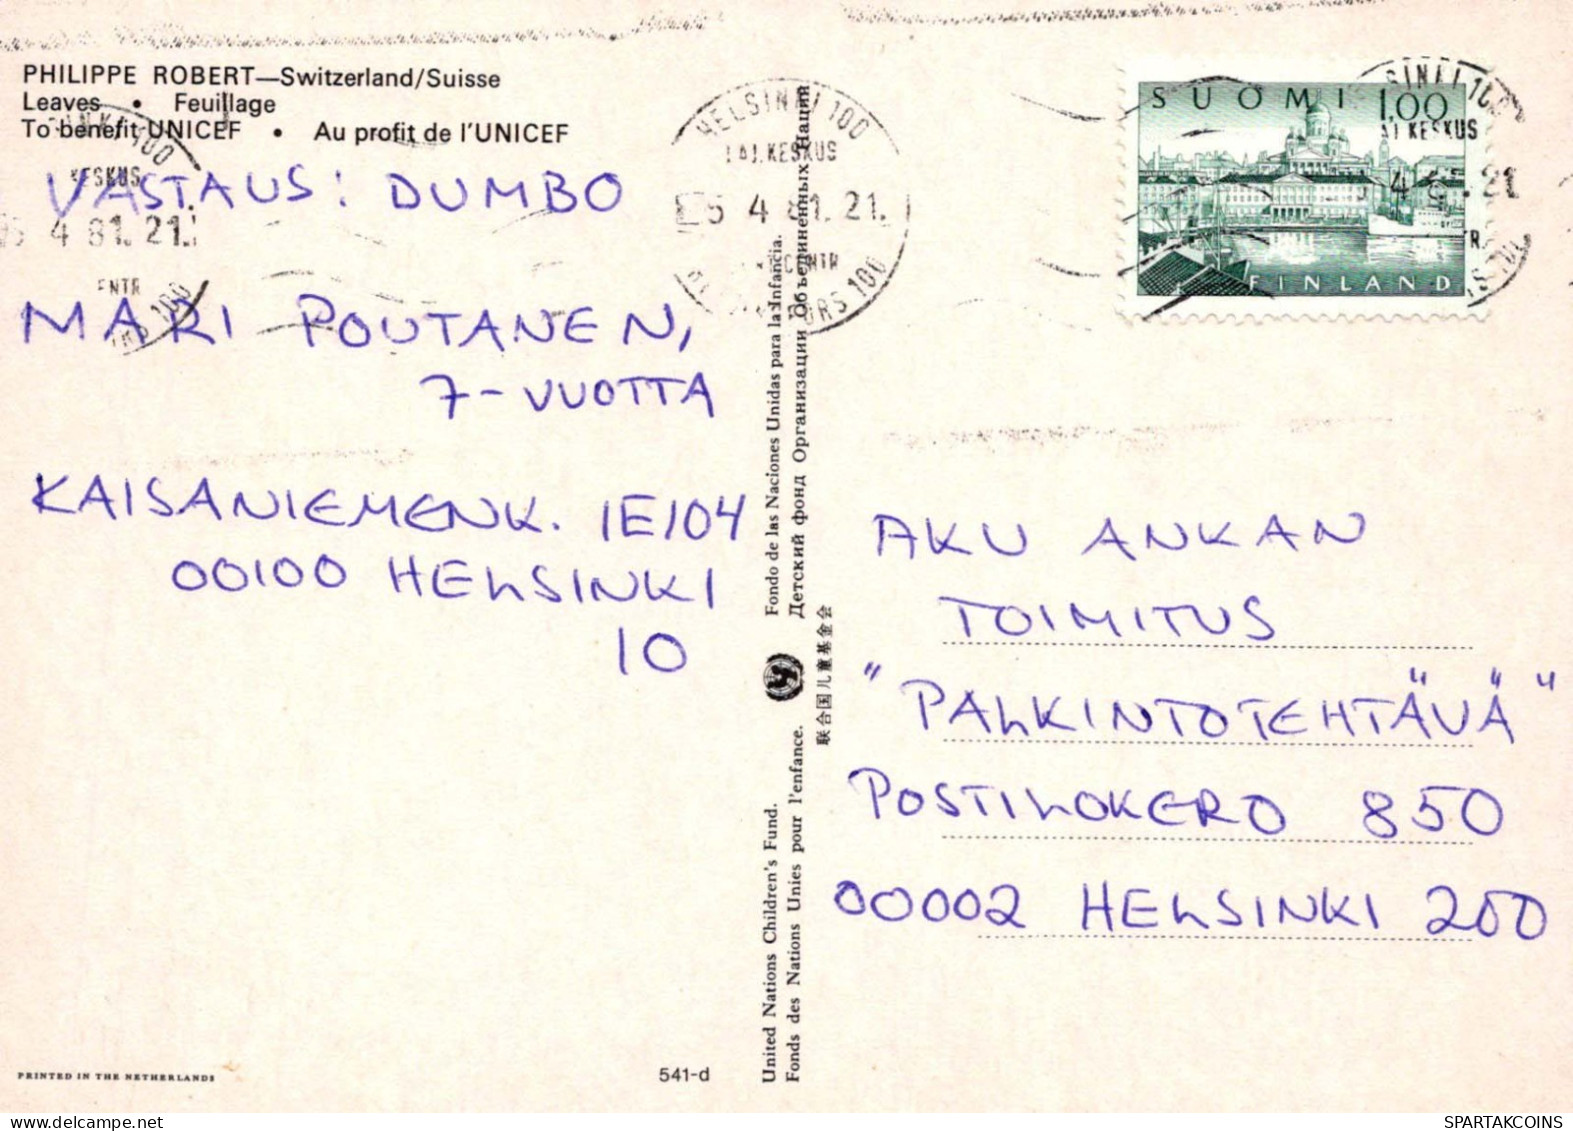 PHILIPPE ROBERT—Switzerland/Suisse
Leaves • Feuillage
To benefit UNICEF • Au profit de l'UNICEF
VASTAUS: DUMBO
MARI POUTANEN,
7-VUOTTA
KAISANIEMENK. 1E104
00100 HELSINKI
10
PRINTED IN THE NETHERLANDS
541-d
KESKUS
4 81.21.
HELSINKI 100
KESKUS
5 4 81.21.
100
United Nations Children's Fund.
Fonds des Nations Unies pour l'enfance.
Fondo de las Naciones Unidas para la Infancia.
Детский фонд Организации Объединенных Наций
联合国儿童基金会
SUOMI 1.00
FINLAND
KESKUS
AKU ANKAN
TOIMITUS
"PALKINTOTEHTÄVÄ"
POSTILOKERO 850
00002 HELSINKI 200
SPARTAKCOINS